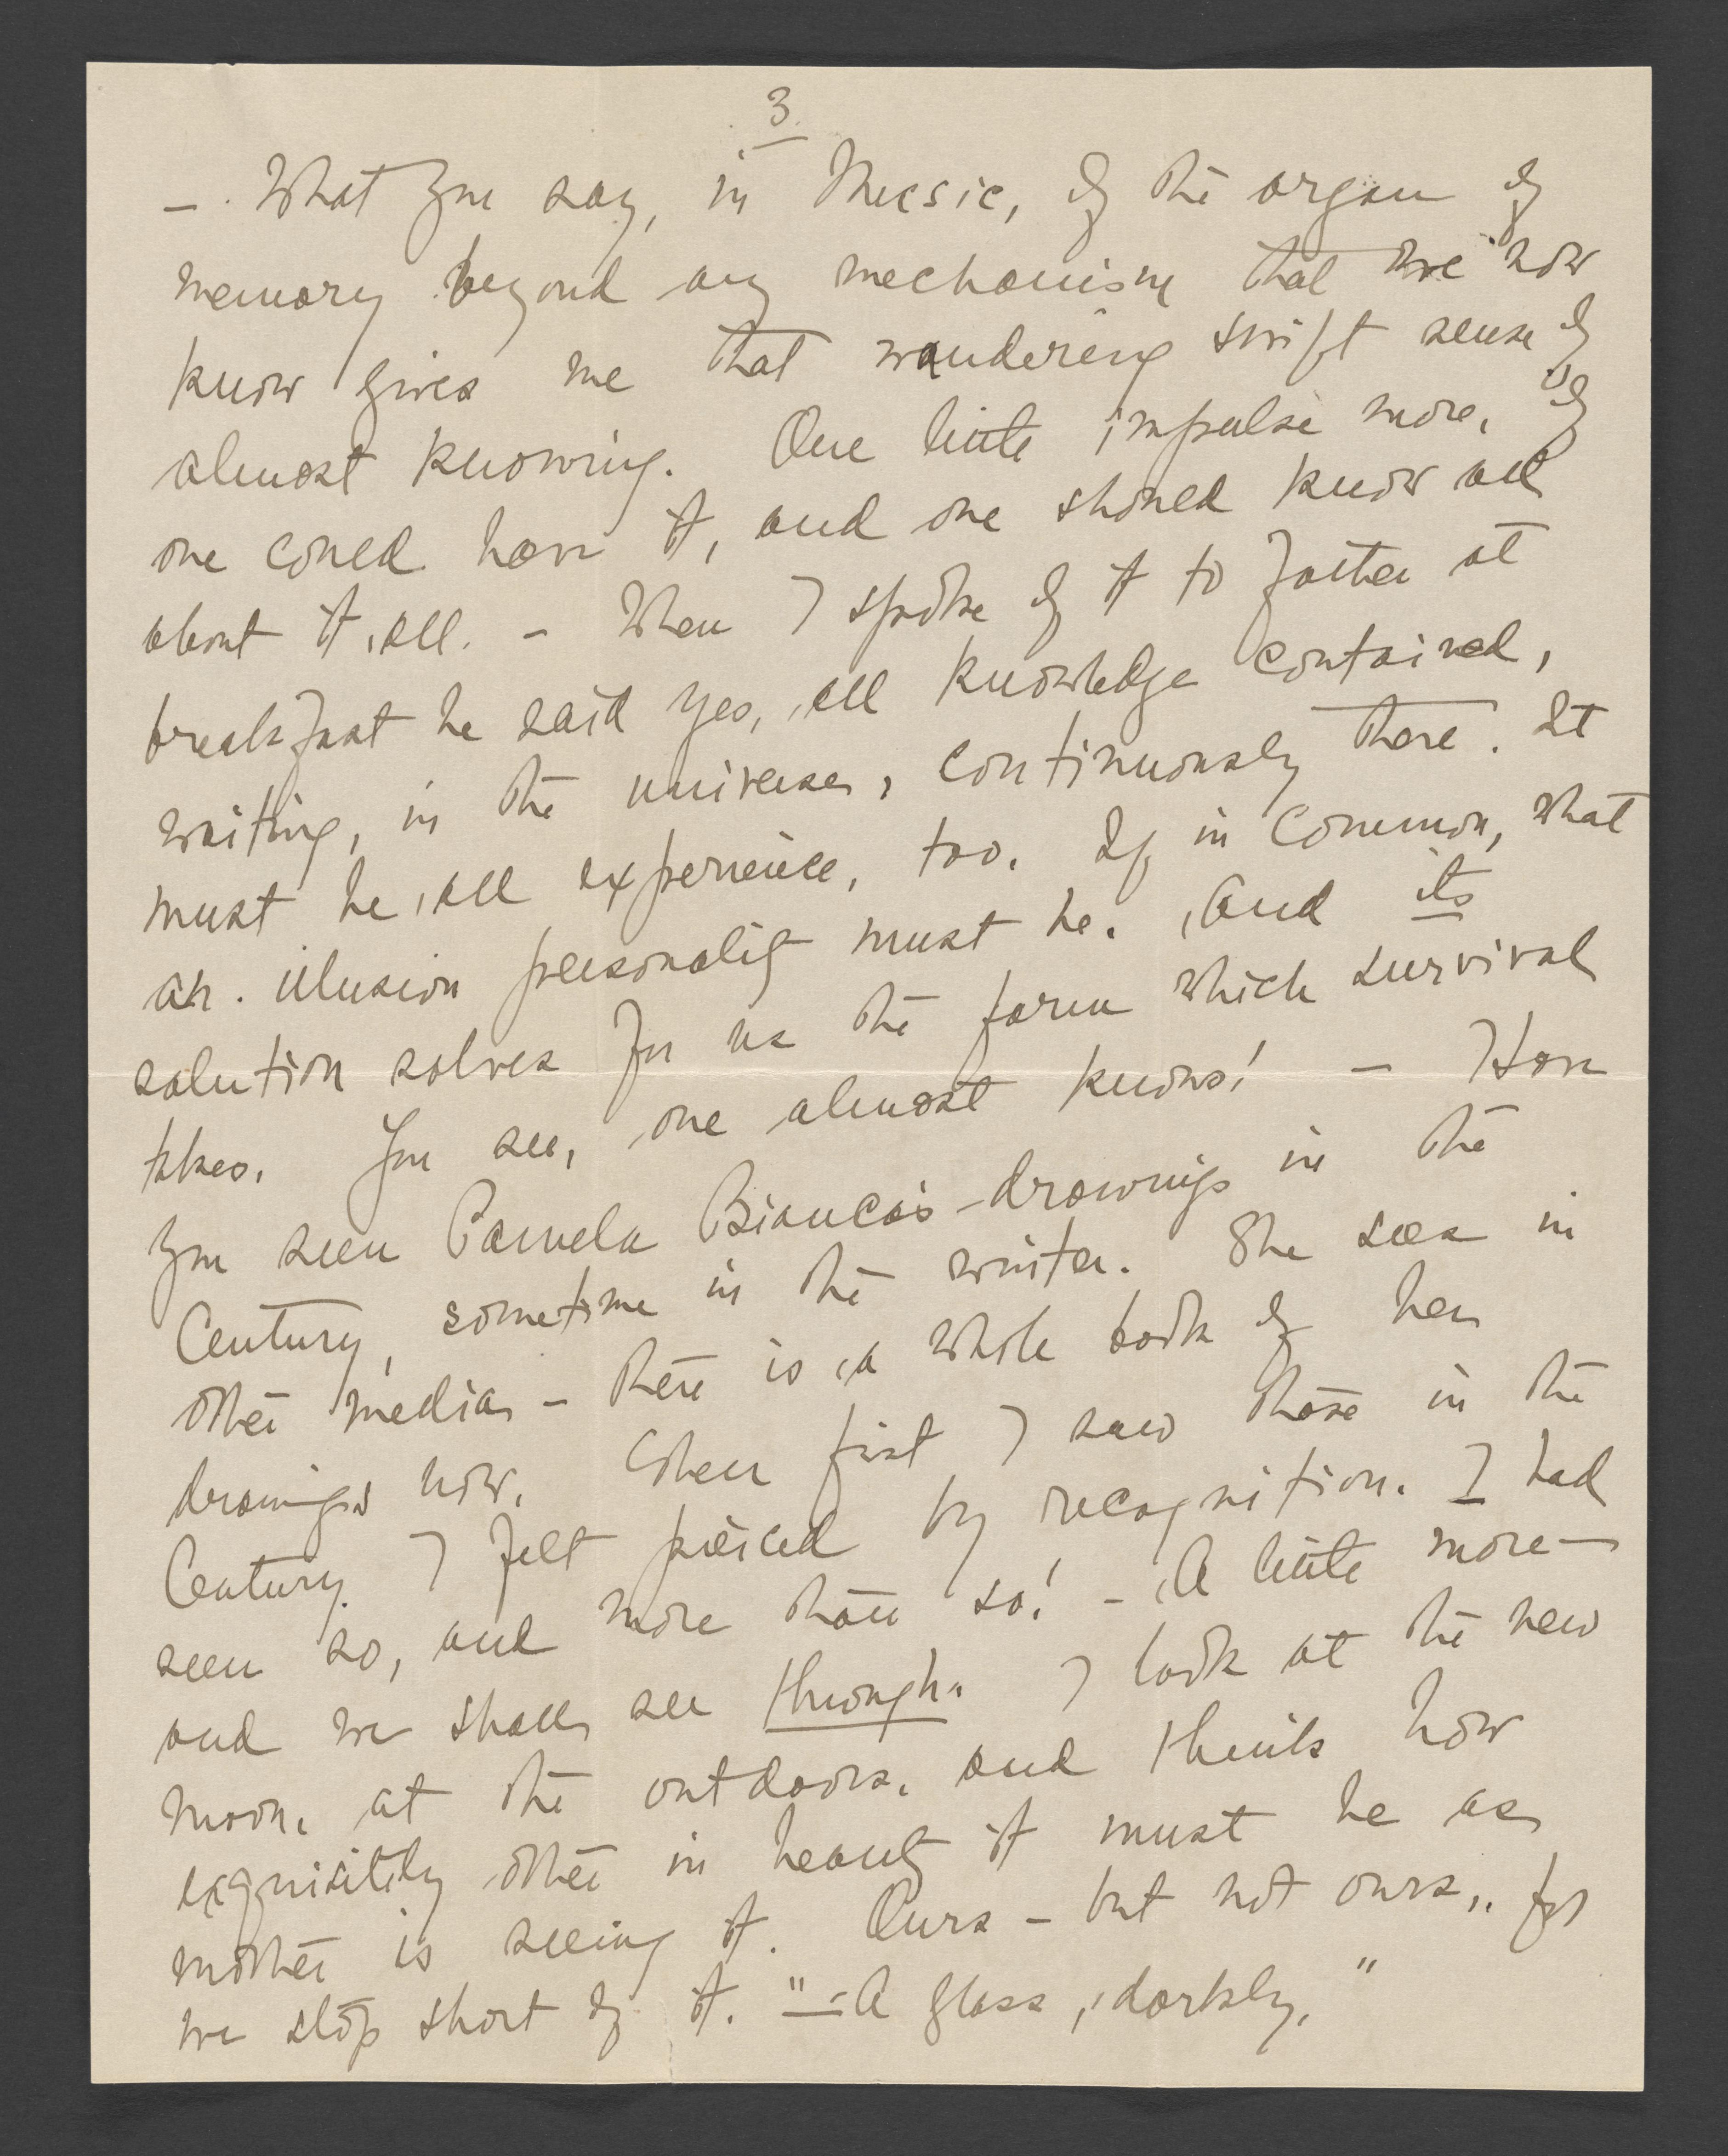 3
–. What you say, in Music, of the organ of
memory beyond any mechanism that we now
know gives me that wandering swift sense of
almost knowing. One little impulse more, of
one could have it, and one should know all
about it all. – When I spoke of it to Father at
breakfast he said yes, all knowledge contained,
waiting, in the universe, continuously there. It
must be all experience, too. If in common, what
an illusion personality must be. And its
solution solves for us the form which survival
takes. You see, one almost knows! – Have
you seen Pamela Bianca's drawings in the
Century, sometime in the winter. She sees in
other media – there is a whole book of her
drawings now. When first I saw those in the
Century I felt pierced by recognition. I had
seen so, and more than so! – A little more –
and we shall see through. I look at the new
moon, at the outdoors, and think how
exquisitely other in beauty it must be as
mother is seeing it. Ours – but not ours, for
we stop short of it. "– A glass, darkly."